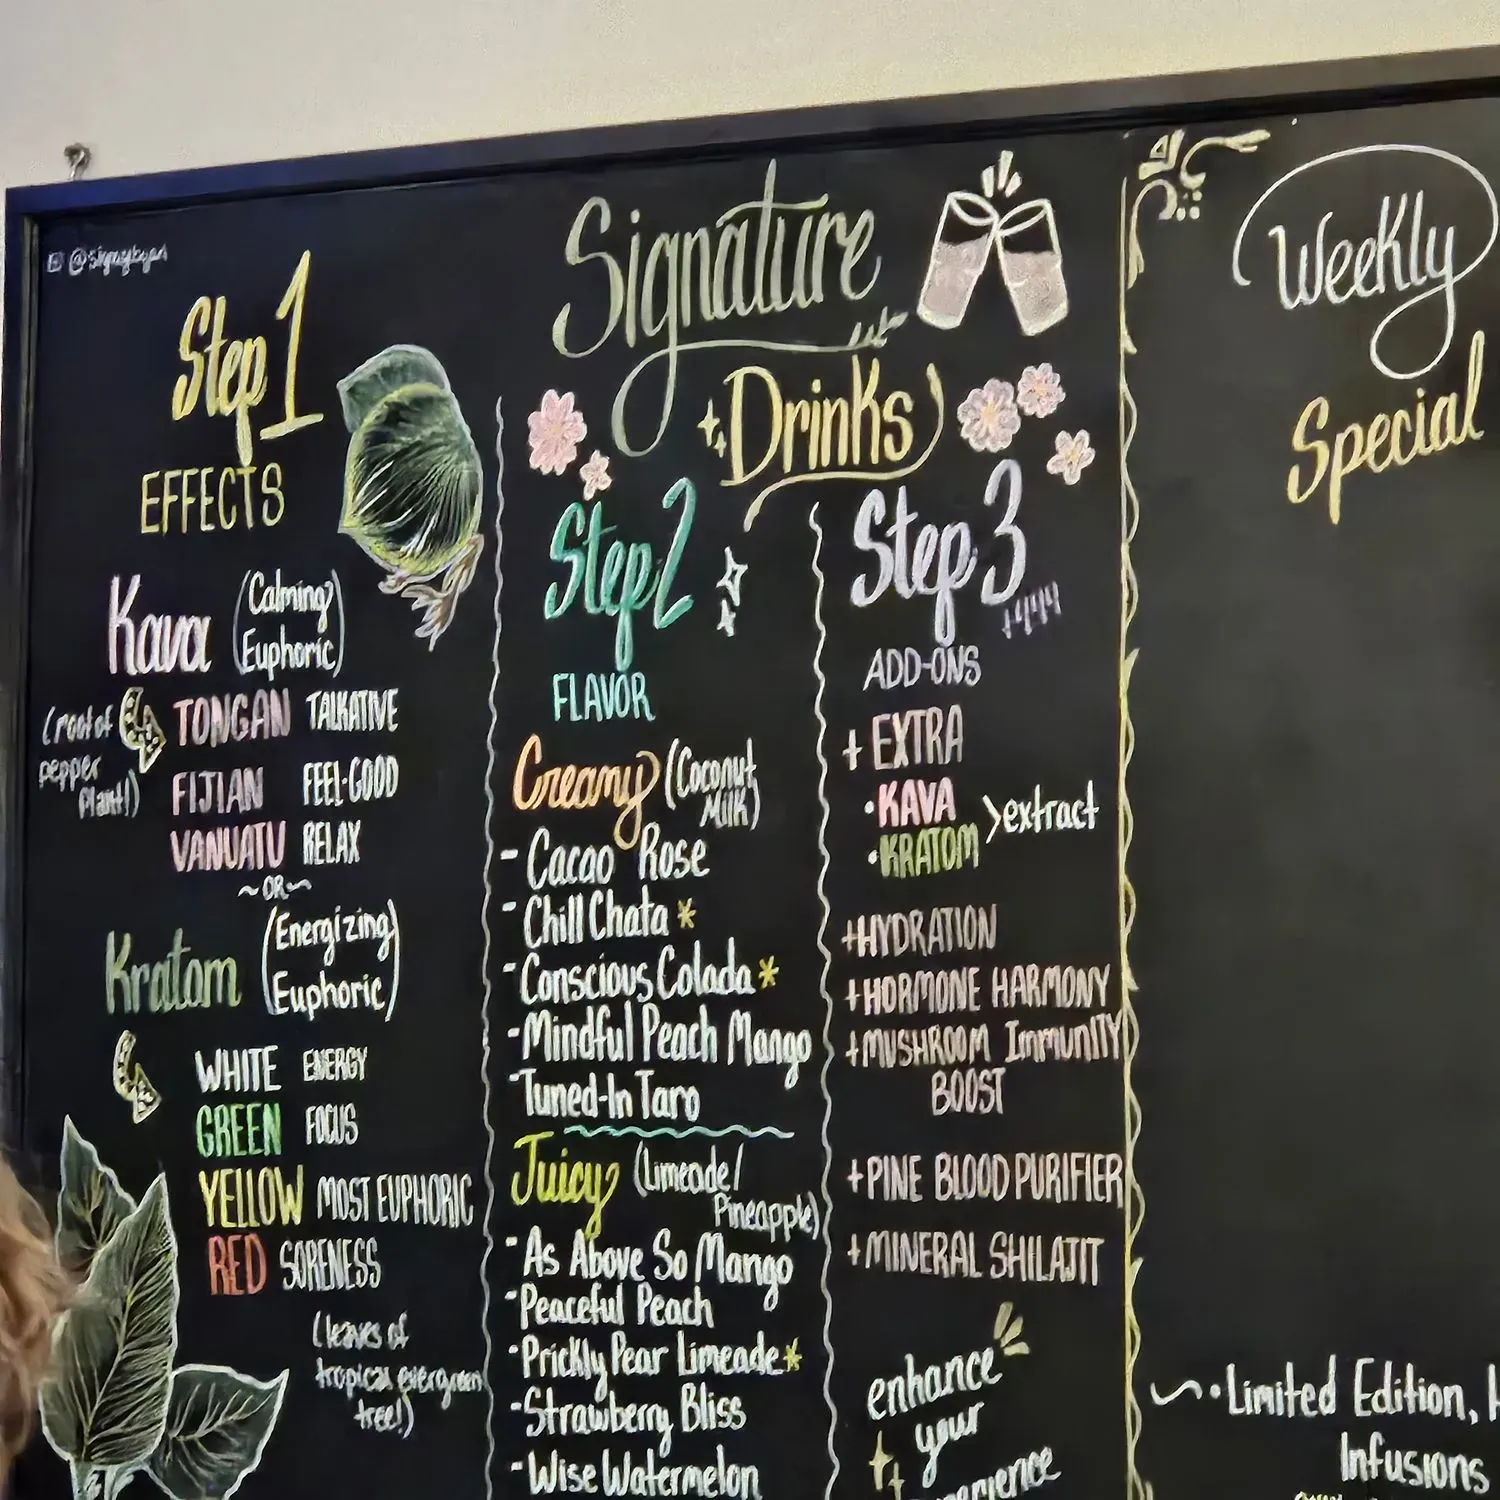 Signature
Drinks
Step 1
EFFECTS
Kava (Calming
Euphoric)
(root of
pepper
plant!)
TONGAN TALKATIVE
FIJIAN FEEL-GOOD
VANUATU RELAX
~OR~
Kratom (Energizing
Euphoric)
WHITE ENERGY
GREEN FOCUS
YELLOW MOST EUPHORIC
RED SORENESS
(leaves of
tropical evergreen
tree!)
Step 2
FLAVOR
Creamy (Coconut
Milk)
- Cacao Rose
- Chill Chata *
- Conscious Colada *
- Mindful Peach Mango
- Tuned-In Taro
Juicy (Limeade/
Pineapple)
- As Above So Mango
- Peaceful Peach
- Prickly Pear Limeade *
- Strawberry Bliss
- Wise Watermelon
Step 3
ADD-ONS
+ EXTRA
• KAVA
• KRATOM > extract
+ HYDRATION
+ HORMONE HARMONY
+ MUSHROOM Immunity
BOOST
+ PINE BLOOD PURIFIER
+ MINERAL SHILAJIT
enhance
your
Weekly
Special
• Limited Edition,
Infusions